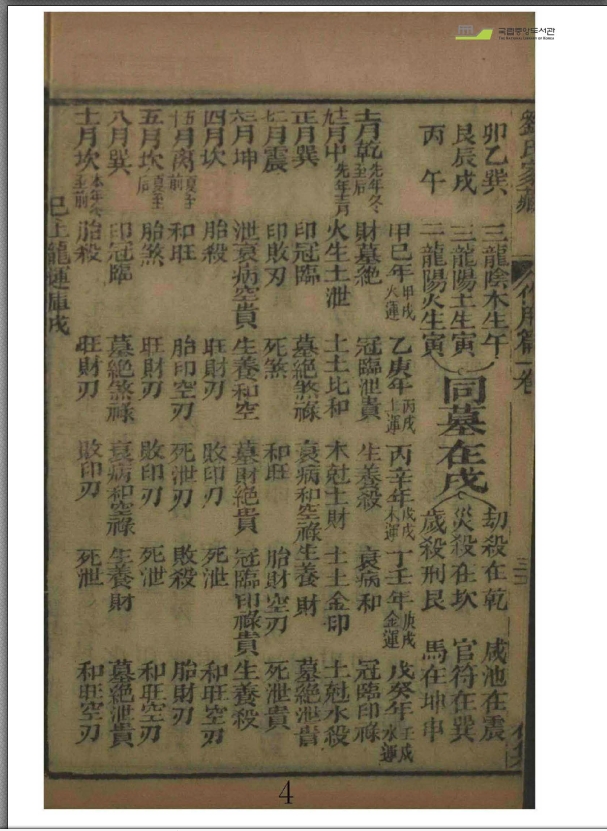 국립중앙도서관
THE NATIONAL LIBRARY OF KOREA
劉氏家藏 作用篇一卷 三
卯乙巽 三龍陰木生午 劫殺在乾 咸池在震
艮辰戌 三龍陽土生寅 同墓在戌 災殺在坎 官符在巽
丙午 二龍陽火生寅 歲殺刑艮 馬在坤申
甲巳年 甲戌火運 乙庚年 丙戌土運 丙辛年 戊戌木運 丁壬年 庚戌金運 戊癸年 壬戌水運
十一月乾 先年冬至后 財墓絶 冠臨泄貴 生養殺 衰病和 冠臨印祿
十二月中 先年十二月 火生土泄 土土比和 木尅土財 土土金印 土尅水殺
正月巽 印冠臨 墓絶煞祿 衰病和空祿 生養財 墓絶泄貴
二月震 印敗刃 死煞 和旺 胎財空刃 死泄貴
三月坤 泄衰病空貴 生養和空 墓財絶貴 冠臨印祿貴 生養殺
四月坎 胎殺 旺財刃 敗印刃 死泄 和旺空刃
五月离 夏至前 和旺 胎印空刃 死泄刃 敗殺 胎財刃
五月坎 夏至后 胎煞 旺財刃 敗印刃 死泄 和旺空刃
八月巽 印冠臨 墓絶煞祿 衰病和空祿 生養財 墓絶泄貴
十一月坎 本年冬至前 胎殺 旺財刃 敗印刃 死泄 和旺空刃
已上龍運庫戌
4